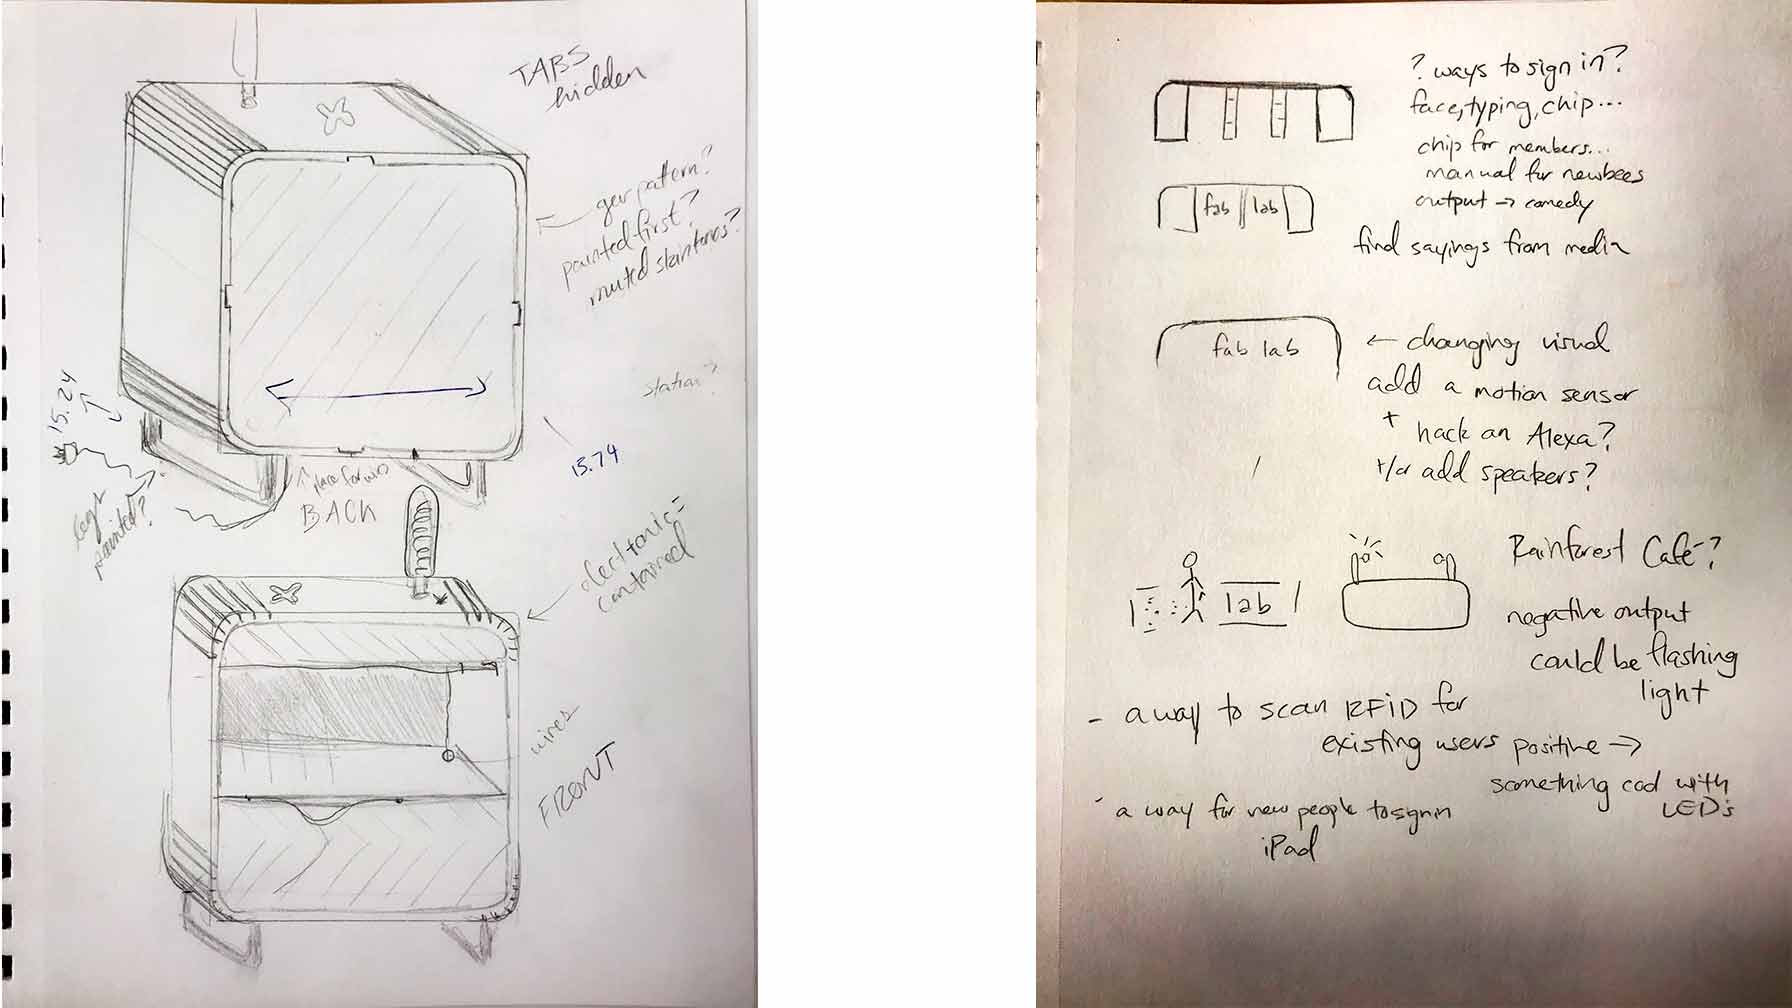 TABS
hidden
pattern?
painted first?
muted
station?
15.24
15.74
legs
painted?
place for
BACK
electronics
contained
wires
FRONT
? ways to sign in?
face, typing, chip...
chip for members...
manual for newbees
output → comedy
find sayings from media
fab lab
fab lab
← changing visual
add a motion sensor
+ hack an Alexa?
+/or add speakers?
Rainforest Cafe?
lab
negative output
could be flashing
light
- a way to scan RFiD for
existing users
positive →
something cool with
LED's
- a way for new people to sign in
iPad